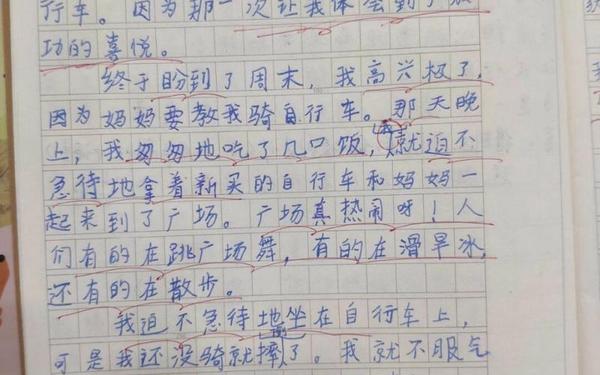 行车。因为那一次让我体会到了成
功的喜悦。
终于盼到了周末，我高兴极了，
因为妈妈要教我骑自行车。那天晚
上，我匆匆地吃了几口饭，就迫不
急待地拿着新买的自行车和妈妈一
起来到了广场。广场真热闹呀！人
们有的在跳广场舞，有的在滑旱冰，
还有的在散步。
我迫不急待地坐在自行车上，
可是我还没骑就摔了。我就不服气